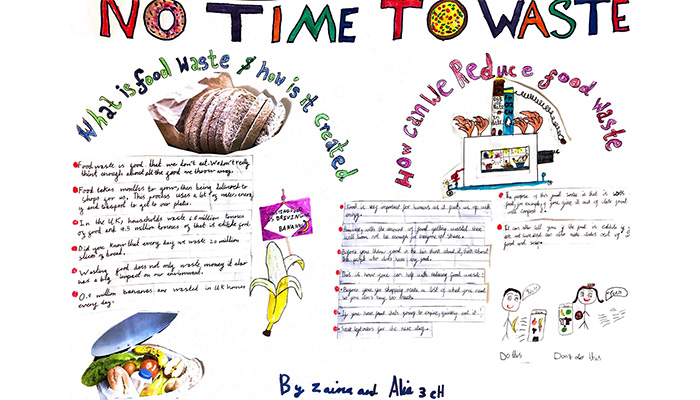 NO TIME TO WASTE
What is food waste & how is it created
How can we Reduce food waste
Food waste is food that we don't eat. We don't really
think enough about all the food we throw away.
Food takes months to grow, then being delivered to
shops for us. This process uses a lot of water, energy
and transport to get to our plate.
In the UK, households waste 6.6 million tonnes
of food and 4.5 million tonnes of that is edible food.
Did you know that every day we waste 20 million
slices of bread.
Wasting food does not only waste money it also
has a big impact on our environment.
0.9 million bananas are wasted in UK homes
every day.
BANANAS
Food is very important for humans as it fuels us up with
energy.
with the amount of food getting wasted there
will not be enough for everyone to share.
Before you throw food in the bin think about it, think about
the people who don't have any food.
This is how you can help with reducing food waste:
Before you go shopping make a list of what you need
so you don't buy too much.
If you have food that's going to expire, quickly eat it!
Save leftovers for the next day.
The purpose of this food
food for example if you give it out of date food
will compost it.
It can also tell you if the food is edible
Do this
Don't do this
By Zaina and Alia 3CH